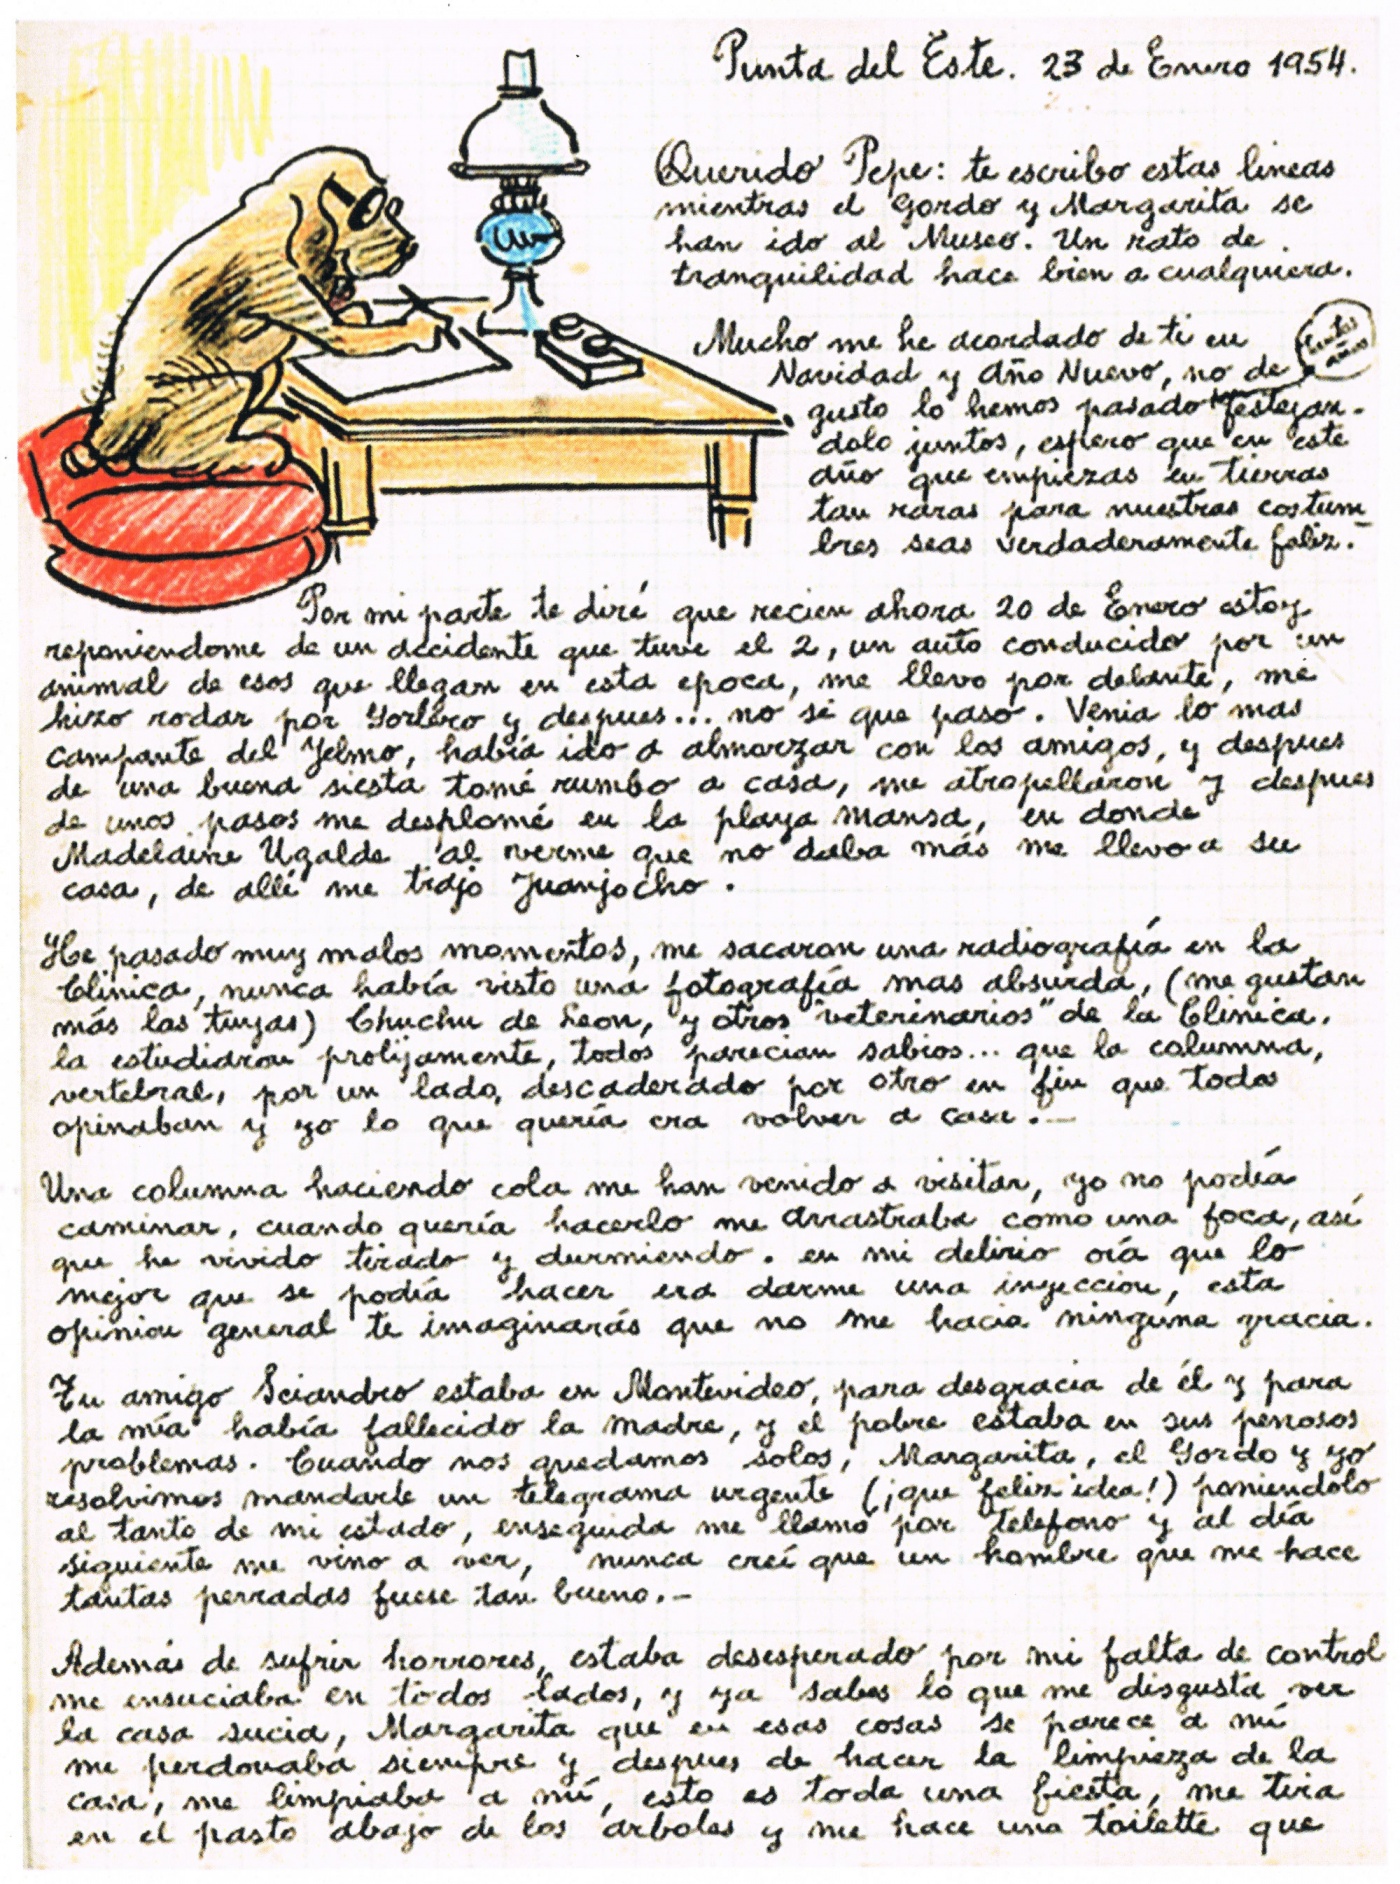 Punta del Este. 23 de Enero 1954.
Querido Pepe: te escribo estas lineas
mientras el Gordo y Margarita se
han ido al Museo. Un rato de
tranquilidad hace bien a cualquiera.
Mucho me he acordado de ti en
Navidad y Año Nuevo, no de
tantos
años
gusto lo hemos pasado festejan-
dolo juntos, espero que en este
año que empiezas en tierras
tan raras para nuestras costum-
bres seas verdaderamente feliz.-
Por mi parte te diré que recien ahora 20 de Enero estoy
reponiendome de un accidente que tuve el 2, un auto conducido por un
animal de esos que llegan en esta epoca, me llevo por delante, me
hizo rodar por Gorlero y despues... no sé que paso. Venia lo mas
campante del Yelmo, había ido a almorzar con los amigos, y despues
de una buena siesta tomé rumbo a casa, me atropellaron y despues
de unos pasos me desplomé en la playa mansa, en donde
Madelaine Ugalde al verme que no daba más me llevo a su
casa, de allí me trajo Juanjocho.
He pasado muy malos momentos, me sacaron una radiografía en la
Clinica, nunca había visto una fotografía mas absurda, (me gustan
más las tuyas) Chuchu de Leon, y otros "veterinarios" de la Clinica.
la estudiaron prolijamente, todos parecian sabios... que la columna,
vertebral, por un lado, descaderado por otro en fin que todos
opinaban y yo lo que quería era volver a casa.-
Una columna haciendo cola me han venido a visitar, yo no podía
caminar, cuando quería hacerlo me arrastraba como una foca, así
que he vivido tirado y durmiendo. en mi delirio oía que lo
mejor que se podía hacer era darme una inyeccion, esta
opinion general te imaginarás que no me hacia ninguna gracia.
Tu amigo Sciandro estaba en Montevideo, para desgracia de él y para
la mía había fallecido la madre, y el pobre estaba en sus penosos
problemas. Cuando nos quedamos solos, Margarita, el Gordo y yo
resolvimos mandarle un telegrama urgente (¡que feliz idea!) poniendolo
al tanto de mi estado, enseguida me llamó por telefono y al día
siguiente me vino a ver, nunca creí que un hombre que me hace
tantas perradas fuese tan bueno.-
Además de sufrir horrores, estaba desesperado por mi falta de control
me ensuciaba en todos lados, y ya sabes lo que me disgusta ver
la casa sucia, Margarita que en esas cosas se parece a mí
me perdonaba siempre y despues de hacer la limpieza de la
casa, me limpiaba a mí, esto es toda una fiesta, me tira
en el pasto abajo de los árboles y me hace una toilette que